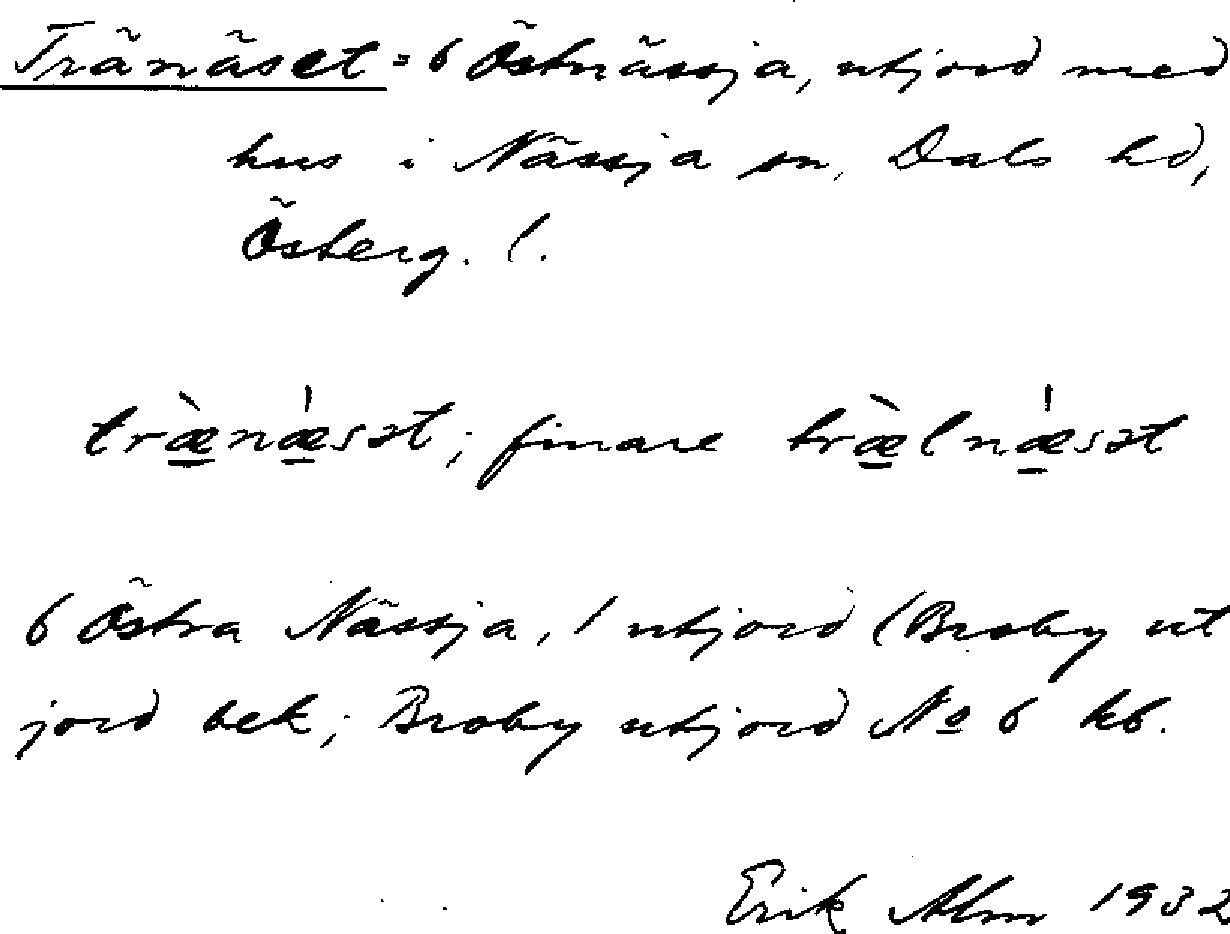 Tränäset = 6 Östnässja, utjord med
hus i Nässja sn, Dals hd,
Österg. l.
træ̀næ̀́sət; finare træ̀lnæ̀́sət
6 Östra Nässja, 1 utjord (Broby ut
jord bek; Broby utjord No 6 kb.
Erik Alm 1932